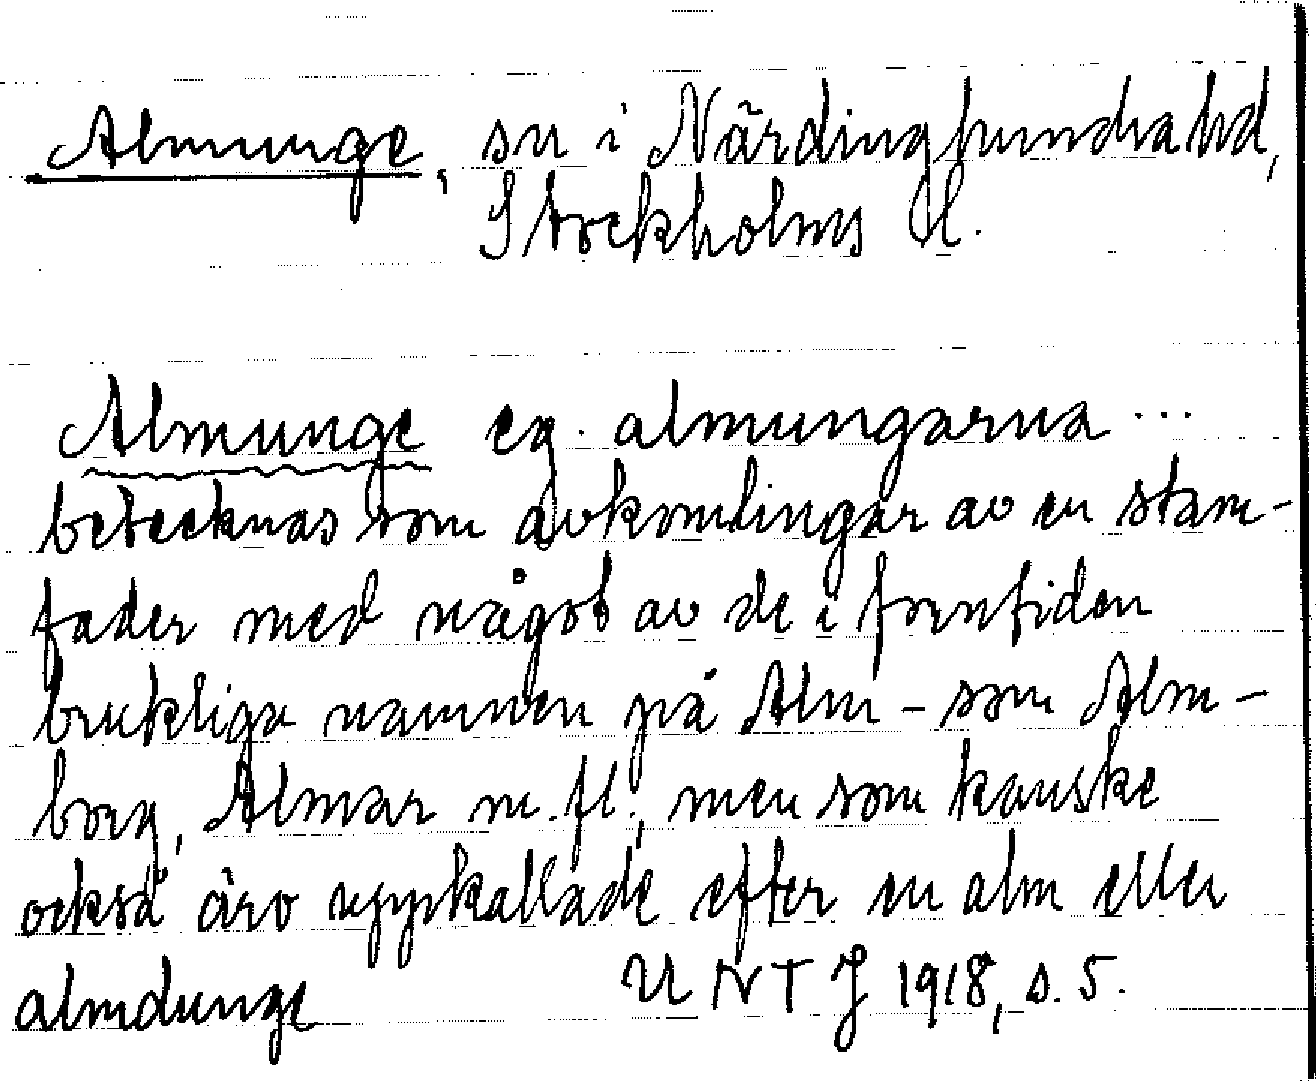 Almunge, sn i Närdinghundra hd,
Stockholms l.
Almunge eg. almungarna ...
betecknas som avkomlingar av en stam-
fader med något av de i forntiden
brukliga namnen på Alm- som Alm-
borg, Almar m.fl., men som kanske
också äro uppkallade efter en alm eller
almdunge
UNTJ 1918, s. 5.